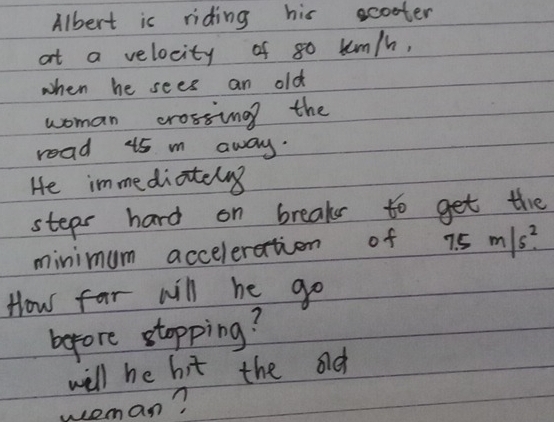 Albert is riding his scooter
at a velocity of 80 km/h,
when he sees an old
woman crossing the
road 45 m away.
He immediately
steps hard on breaks to get the
minimum acceleration of 7.5 m/s².
How far will he go
before stopping?
will he hit the old
woman?